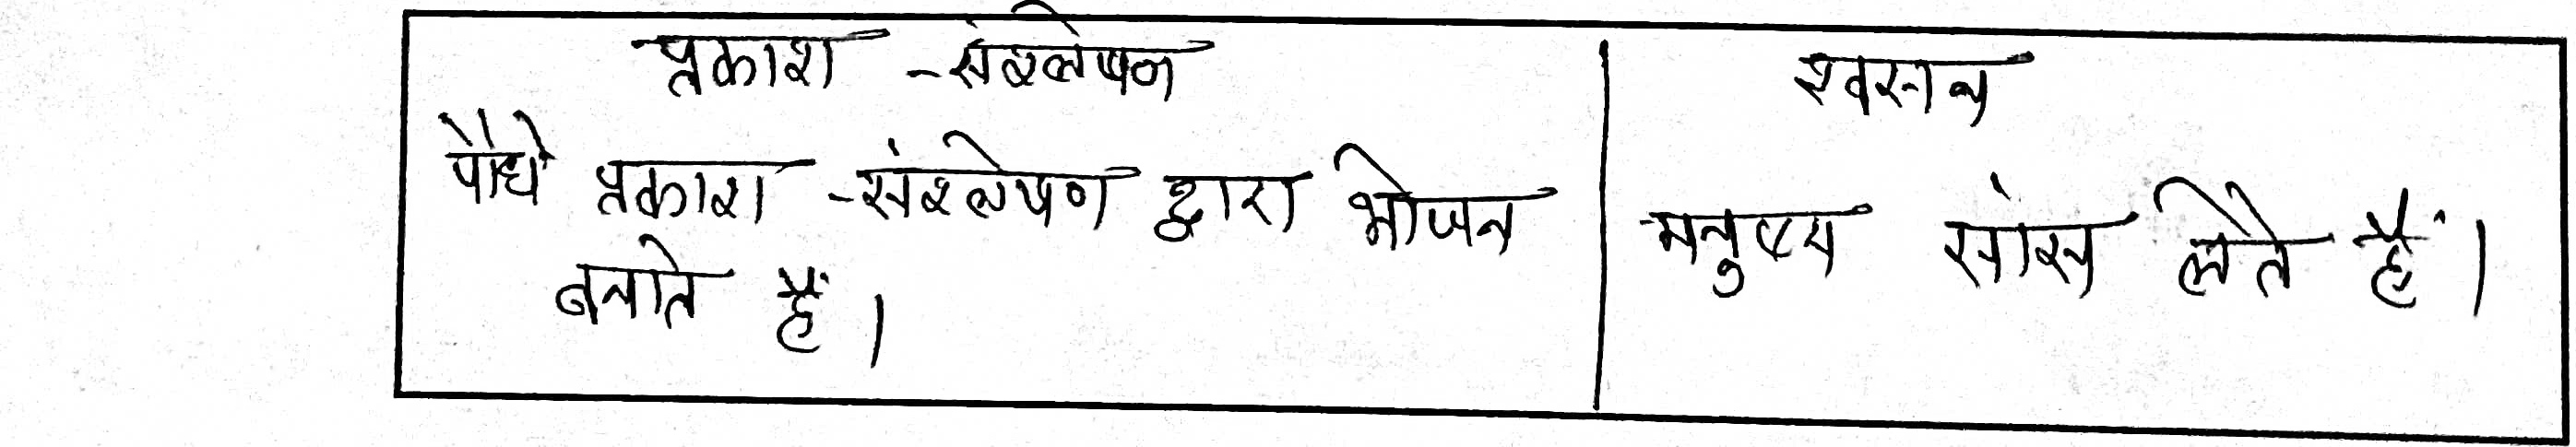 प्रकाश -संश्लेषण
पौधे प्रकाश -संश्लेषण द्वारा भोजन
बनाते हैं।
श्वसन
मनुष्य सांस लेते हैं।